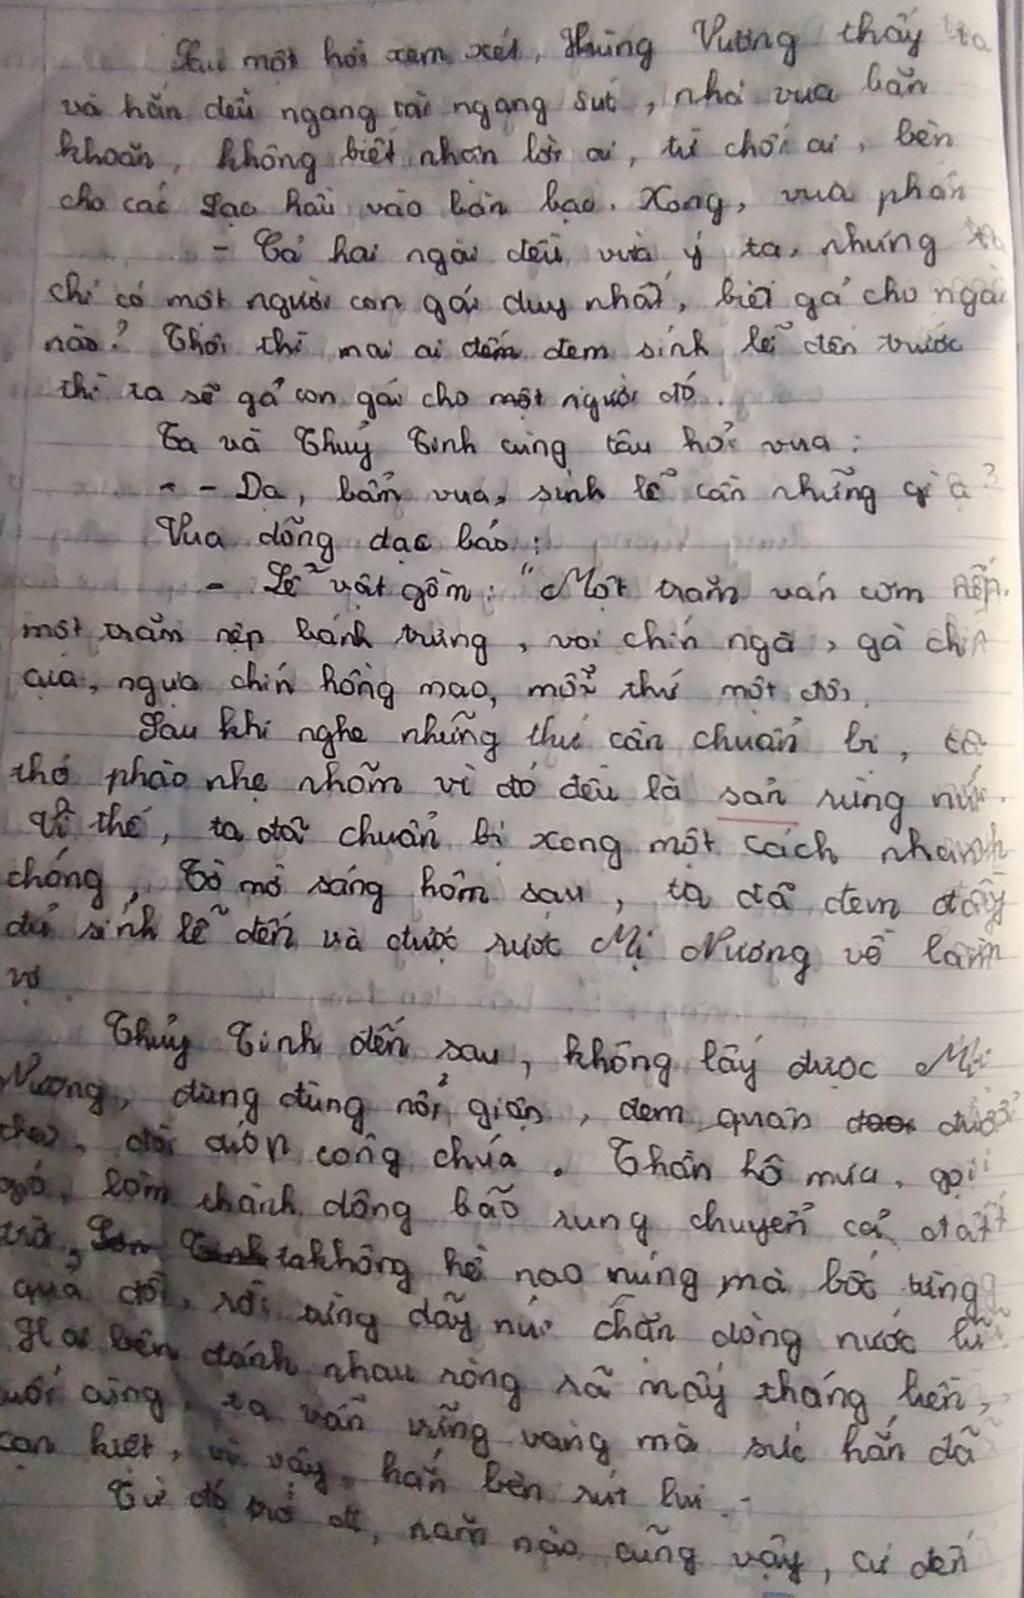 Sau một hồi xem xét, Hùng Vương thấy ta
và hắn đều ngang tài ngang sức, nhà vua băn
khoăn, không biết nhận lời ai, từ chối ai, bèn
cho các Lạc hầu vào bàn bạc. Xong, vua phán
- Cả hai ngài đều vừa ý ta, nhưng ta
chỉ có một người con gái duy nhất, biết gả cho ngài
nào? Thôi thì mai ai đem sính lễ đến trước
thì ta sẽ gả con gái cho một người đó.
Ta và Thuỷ Tinh cùng tâu hỏi vua:
- - Dạ, bẩm vua, sính lễ cần những gì ạ?
Vua dõng dạc bảo:
- Lễ vật gồm: "Một trăm ván cơm nếp,
một trăm nệp bánh trưng, voi chín ngà, gà chín
cựa, ngựa chín hồng mao, mỗi thứ một đôi.
Sau khi nghe những thứ cần chuẩn bị, ta
thở phào nhẹ nhõm vì đó đều là sản rừng núi.
Vì thế, ta đã chuẩn bị xong một cách nhanh
chóng, Tờ mờ sáng hôm sau, ta đã đem đầy
đủ sính lễ đến và được rước Mị Nương về làm
vợ
Thủy Tinh đến sau, không lấy được Mị
Nương, đùng đùng nổi giận, đem quân đuổi
theo, đòi cướp công chúa. Thần hô mưa, gọi
gió, làm thành dông bão rung chuyển cả đất
trời, ta không hề nao núng mà bốc từng
quả đồi, rời từng dãy núi chắn dòng nước lũ.
Hai bên đánh nhau ròng rã mấy tháng liền,
cuối cùng, ta vẫn vững vàng mà sức hắn đã
cạn kiệt, vì vậy, hắn bèn rút lui.
Từ đó trở đi, năm nào cũng vậy, cứ đến